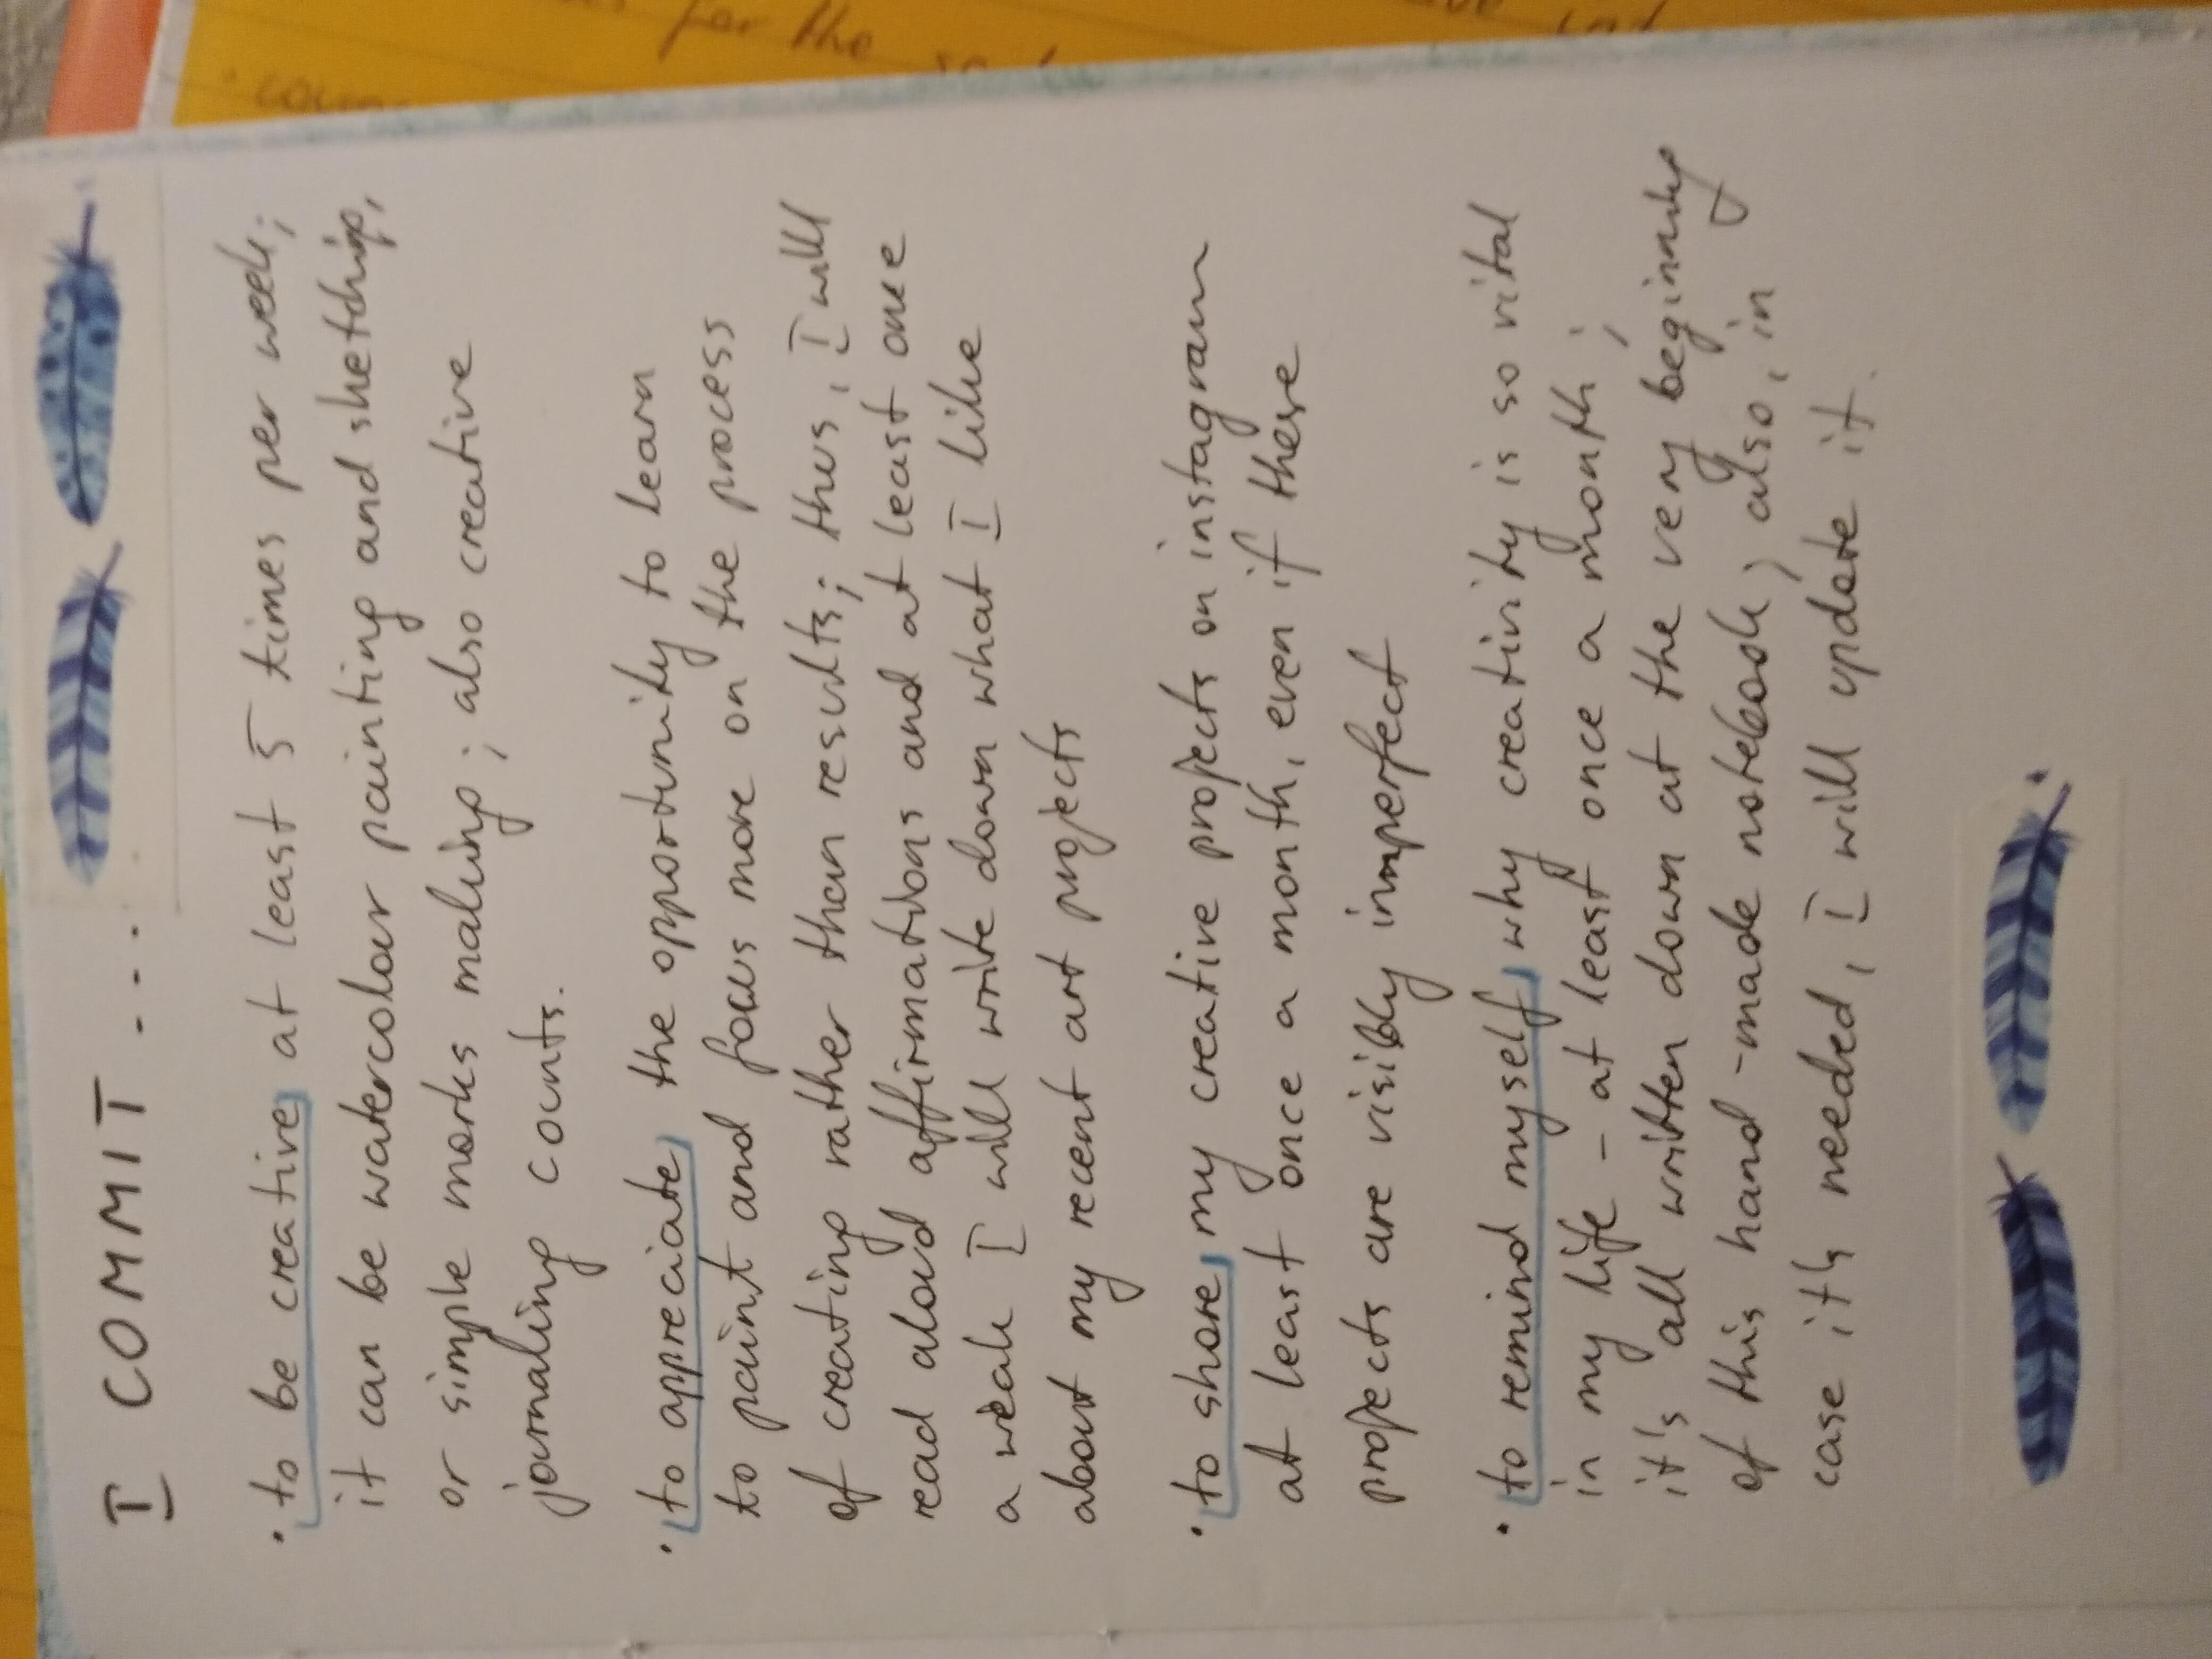 for the
I COMMIT ....
· to be creative at least 5 times per week;
it can be watercolour painting and sketching,
or simple marks making; also creative
journaling counts.
· to appreciate the opportunity to learn
to paint and focus more on the process
of creating rather than results; thus, I will
read aloud affirmations and at least one
a week I will write down what I like
about my recent art projects
· to share my creative projects on instagram
at least once a month, even if these
projects are visibly imperfect
· to remind myself why creativity is so vital
in my life – at least once a month;
it's all written down at the very beginning
of this hand-made notebook; also, in
case it's needed, I will update it.